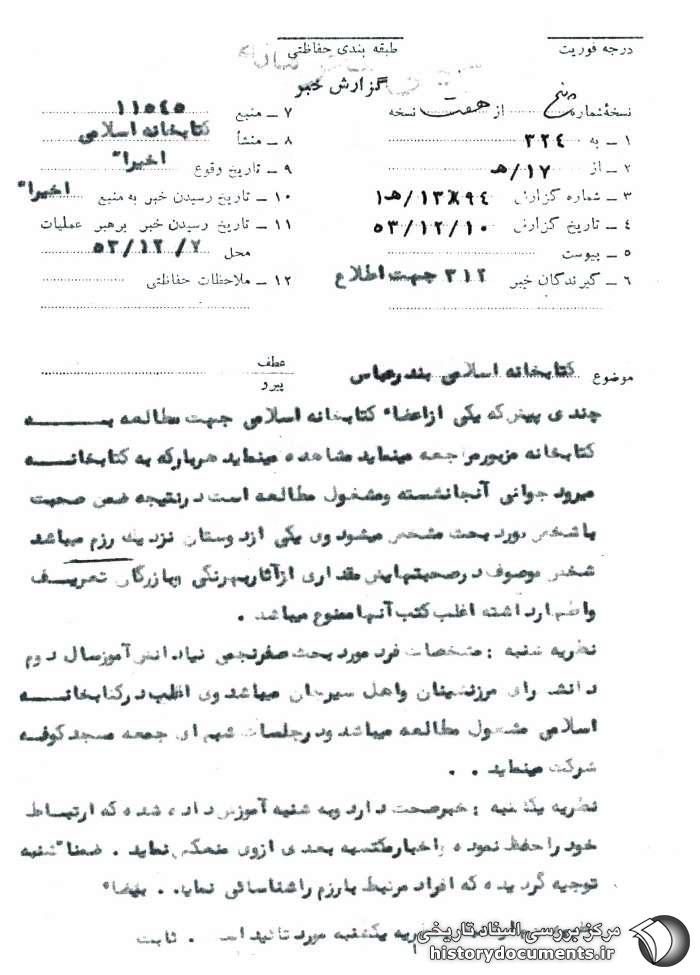 درجه فوریت
طبقه بندی حفاظتی
گزارش خبر
نسخهٔ شماره پنج از هفت نسخه
۱ – به ۳۲۴
۲ – از ۱۷/هـ
۳ – شماره گزارش
۴ – تاریخ گزارش ۵۳/۱۲/۱۰
۵ – پیوست
۶ – گیرندگان خبر ۳۱۲ جهت اطلاع
۷ – منبع ۱۱۵۴۵
۸ – منشأ کتابخانه اسلامی
۹ – تاریخ وقوع اخیرا"
۱۰ – تاریخ رسیدن خبر به منبع اخیرا"
۱۱ – تاریخ رسیدن خبر برهبر عملیات
محل ۵۳/۱۲/۷
۱۲ – ملاحظات حفاظتی
موضوع کتابخانه اسلامی بندرعباس
عطف
پیرو
چندی پیش که یکی ازاعضاء کتابخانه اسلامی جهت مطالعه بــه
کتابخانه مزبورمراجعه مینماید مشاهده مینماید هربارکه به کتابخانــه
میرود جوانی آنجانشسته ومشغول مطالعه است درنتیجه ضمن صحبت
باشخص مورد بحث مشخص میشود وی یکی ازدوستان نزدیك رزم میباشد
شخص موصوف درصحبتهایش مقداری ازآثاربهرنگی وبازرگان تعریــف
واظهارداشته اغلب کتب آنها ممنوع میباشد .
نظریه شنبه : مشخصات فرد مورد بحث صفرنجمی نیادانش آموزسال دوم
دانشسرای مرزنشینان واهل سیرجان میباشد وی اغلب درکتابخانــه
اسلامی مشغول مطالعه میباشد ودرجلسات شبهای جمعه مسجدکوفــه
شرکت مینماید . .
نظریه یکشنبه : خبرصحت دارد وبه شنبه آموزش داده شده که ارتبــاط
خود راحفظ نموده واخبارمکتسبه بعدی ازوی منعکس نماید . ضمنا"شنبه
توجیه گردیده که افراد مرتبط بارزم راشناسائی نماید. . بیضاء
نظریه یکشنبه مورد تائید است . ثابت
مرکز بررسی اسناد تاریخی
historydocuments.ir